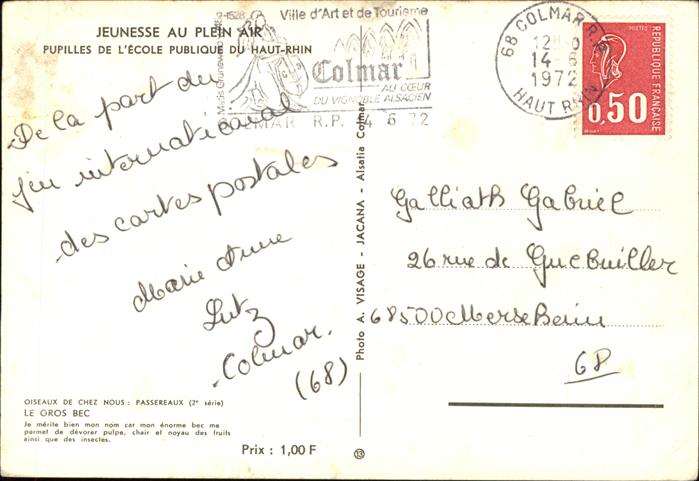 JEUNESSE AU PLEIN AIR
PUPILLES DE L'ÉCOLE PUBLIQUE DU HAUT-RHIN
Ville d'Art et de Tourisme
Colmar
AU CŒUR
DU VIGNOBLE ALSACIEN
COLMAR R.P. 14 6 72
68 COLMAR R.P.
14-6
1972
HAUT RHIN
POSTES
RÉPUBLIQUE FRANÇAISE
0,50
De la part du
jeu international
des cartes postales
Marie Anne
Lutz
Colmar.
(68)
Photo A. VISAGE - JACANA - Alsatia Colmar
Galliath Gabriel
26 rue de Guebwiller
68500 Merxheim
68
OISEAUX DE CHEZ NOUS : PASSEREAUX (2e série)
LE GROS BEC
Je mérite bien mon nom car mon énorme bec me
permet de dévorer pulpe, chair et noyau des fruits
ainsi que des insectes.
Prix : 1,00 F
13